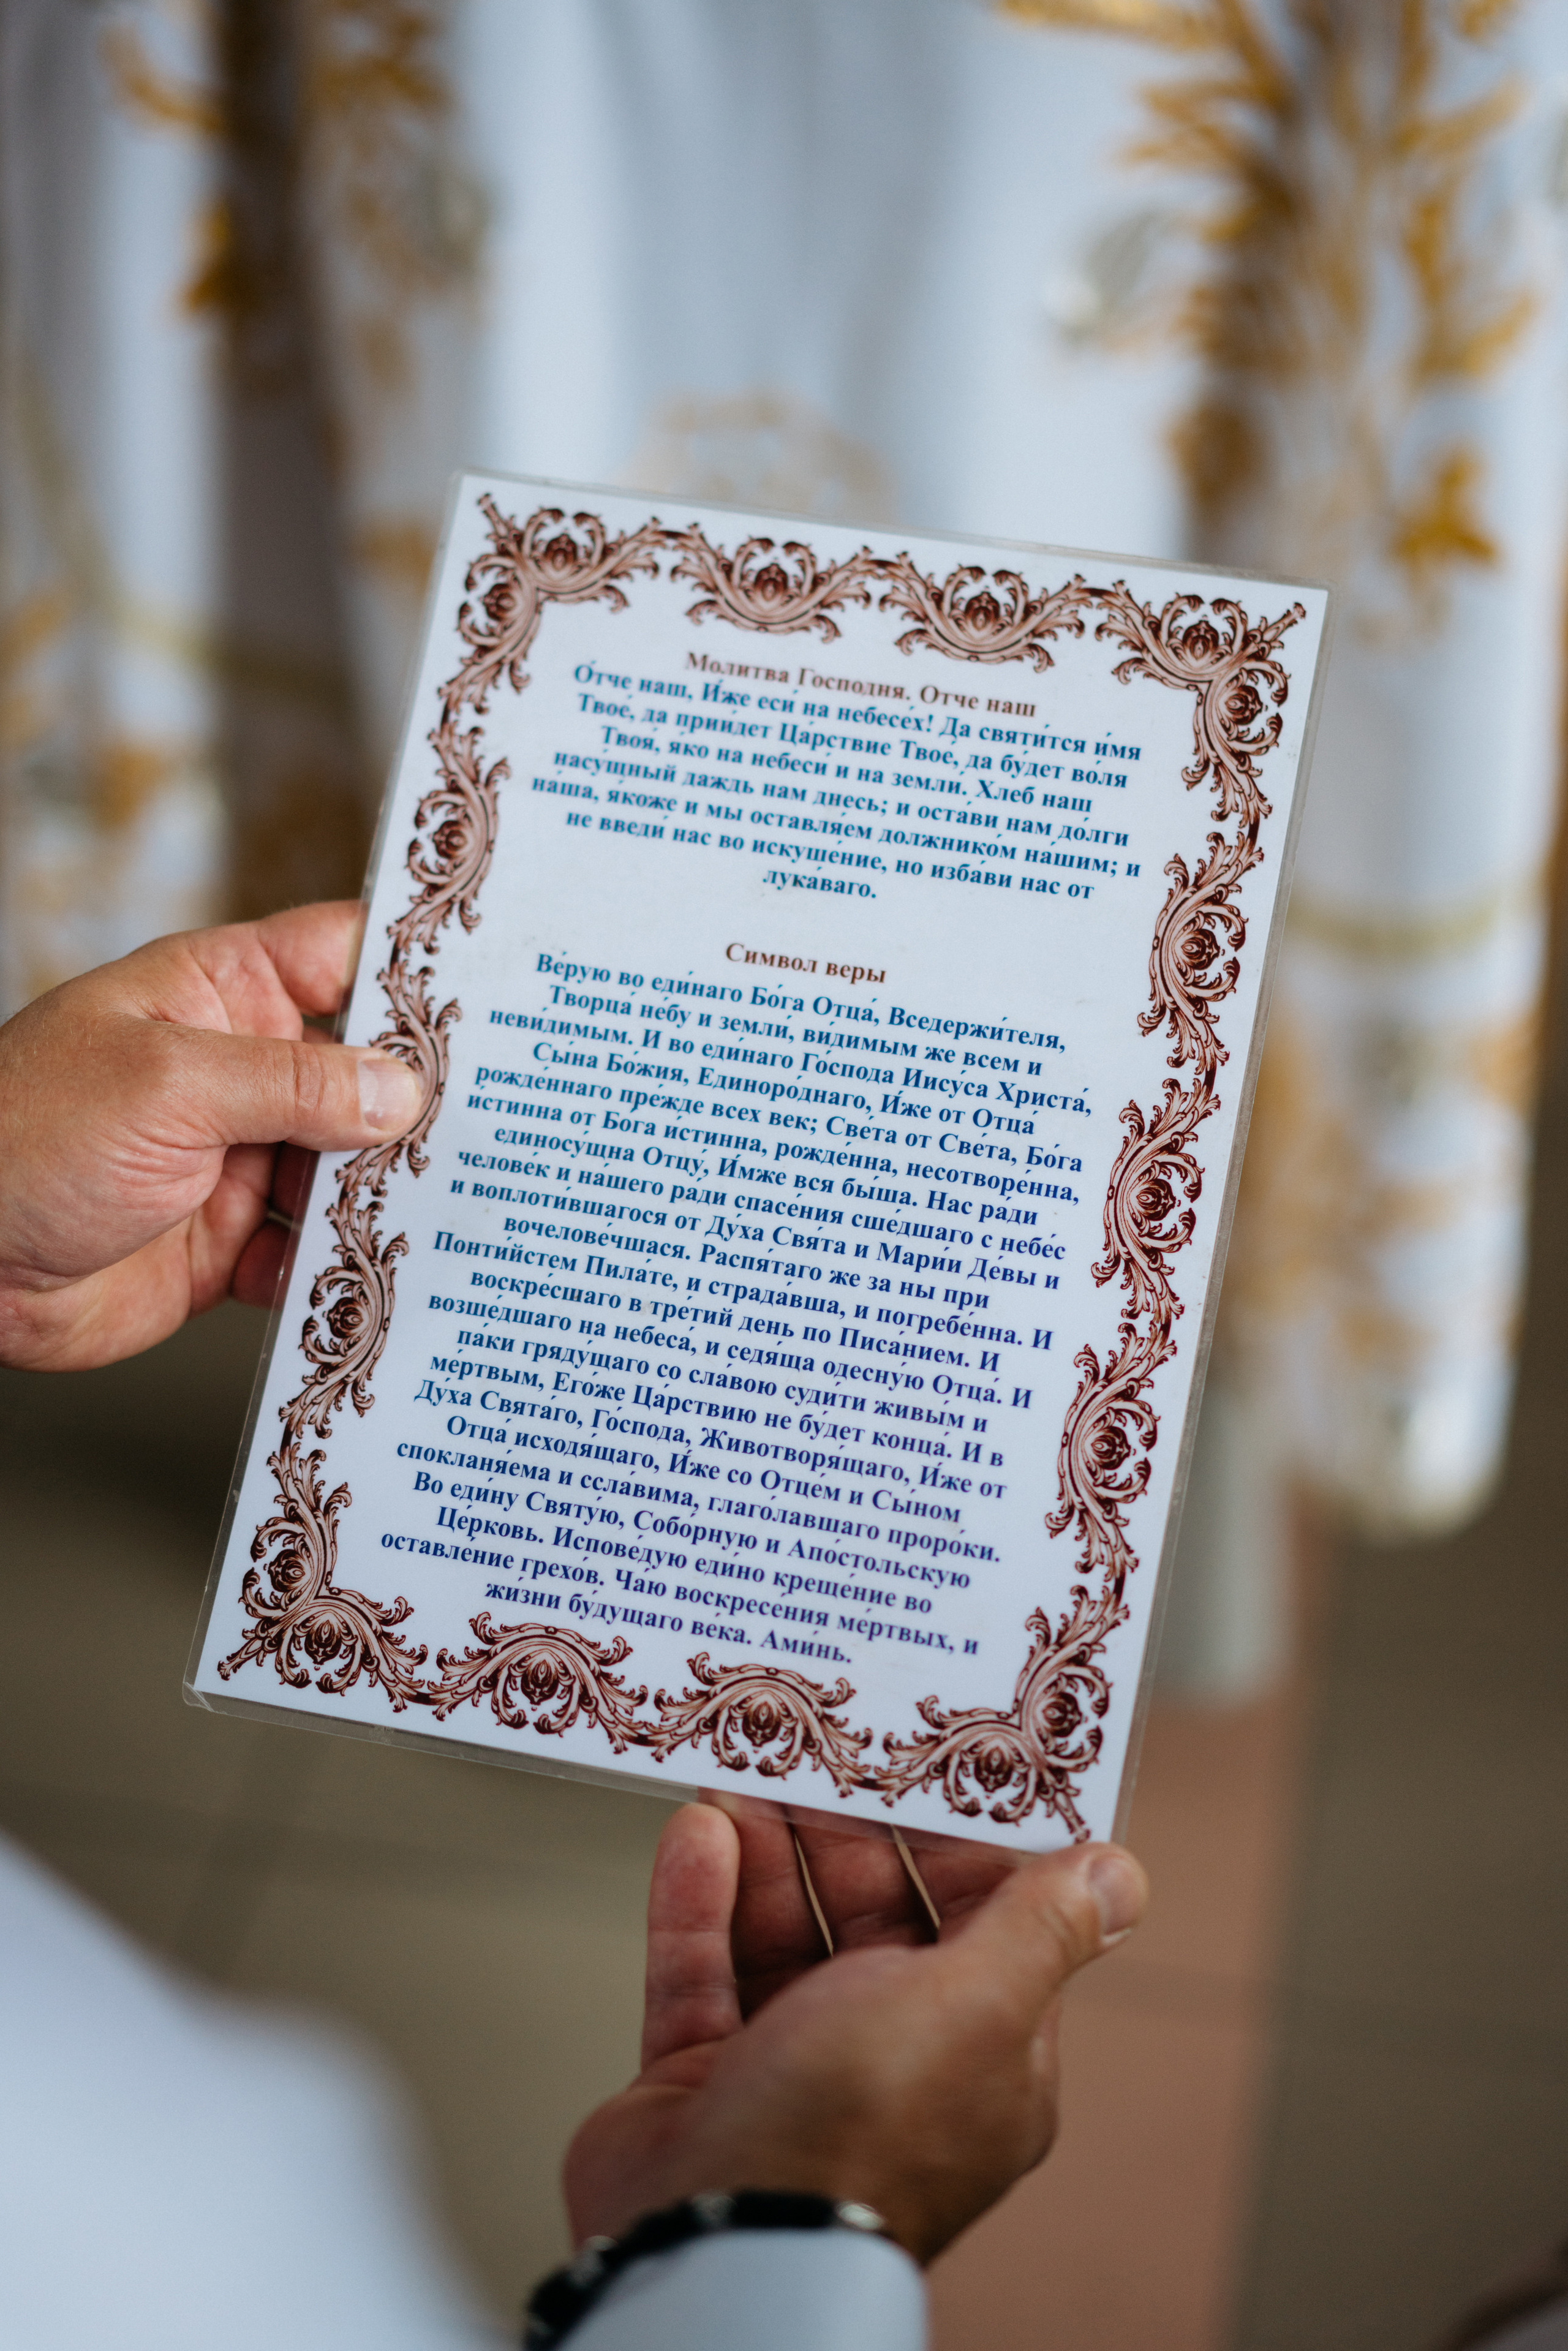 Молитва Господня. Отче наш
О́тче наш, И́же еси́ на небесе́х! Да святи́тся и́мя
Твое́, да прии́дет Ца́рствие Твое́, да бу́дет во́ля
Твоя́, я́ко на небеси́ и на земли́. Хлеб наш
насу́щный даждь нам днесь; и оста́ви нам до́лги
на́ша, я́коже и мы оставля́ем должнико́м на́шим; и
не введи́ нас во искуше́ние, но изба́ви нас от
лука́ваго.
Символ веры
Ве́рую во еди́наго Бо́га Отца́, Вседержи́теля,
Творца́ не́бу и земли́, ви́димым же всем и
неви́димым. И во еди́наго Го́спода Иису́са Христа́,
Сы́на Бо́жия, Единоро́днаго, И́же от Отца́
рожде́ннаго пре́жде всех век; Све́та от Све́та, Бо́га
и́стинна от Бо́га и́стинна, рожде́нна, несотворе́нна,
единосу́щна Отцу́, И́мже вся бы́ша. Нас ра́ди
челове́к и на́шего ра́ди спасе́ния сше́дшаго с небе́с
и воплоти́вшагося от Ду́ха Свя́та и Мари́и Де́вы и
вочелове́чшася. Распя́таго же за ны при
Понти́йстем Пила́те, и страда́вша, и погребе́нна. И
воскре́сшаго в тре́тий день по Писа́нием. И
возше́дшаго на небеса́, и седя́ща одесну́ю Отца́. И
па́ки гряду́щаго со сла́вою суди́ти живы́м и
ме́ртвым, Его́же Ца́рствию не бу́дет конца́. И в
Ду́ха Свята́го, Го́спода, Животворя́щаго, И́же от
Отца́ исходя́щаго, И́же со Отце́м и Сы́ном
спокланя́ема и ссла́вима, глаго́лавшаго проро́ки.
Во еди́ну Святу́ю, Собо́рную и Апо́стольскую
Це́рковь. Испове́дую еди́но креще́ние во
оставле́ние грехо́в. Ча́ю воскресе́ния ме́ртвых, и
жи́зни бу́дущаго ве́ка. Ами́нь.